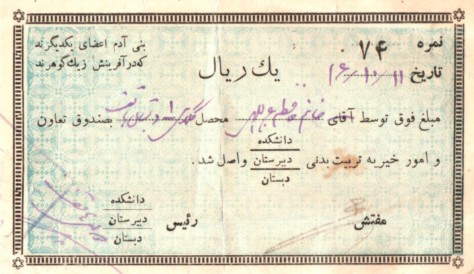 نمره ۷۴
تاریخ ۱۶/۱۰/۱۱
بنی آدم اعضای یکدیگرند
که در آفرینش ز یک گوهرند
یك ریال
مبلغ فوق توسط آقای خانم محصل بصندوق تعاون
دانشکده
و امور خیریه تربیت بدنی دبیرستان واصل شد.
دبستان
دانشکده
مفتش رئیس دبیرستان
دبستان